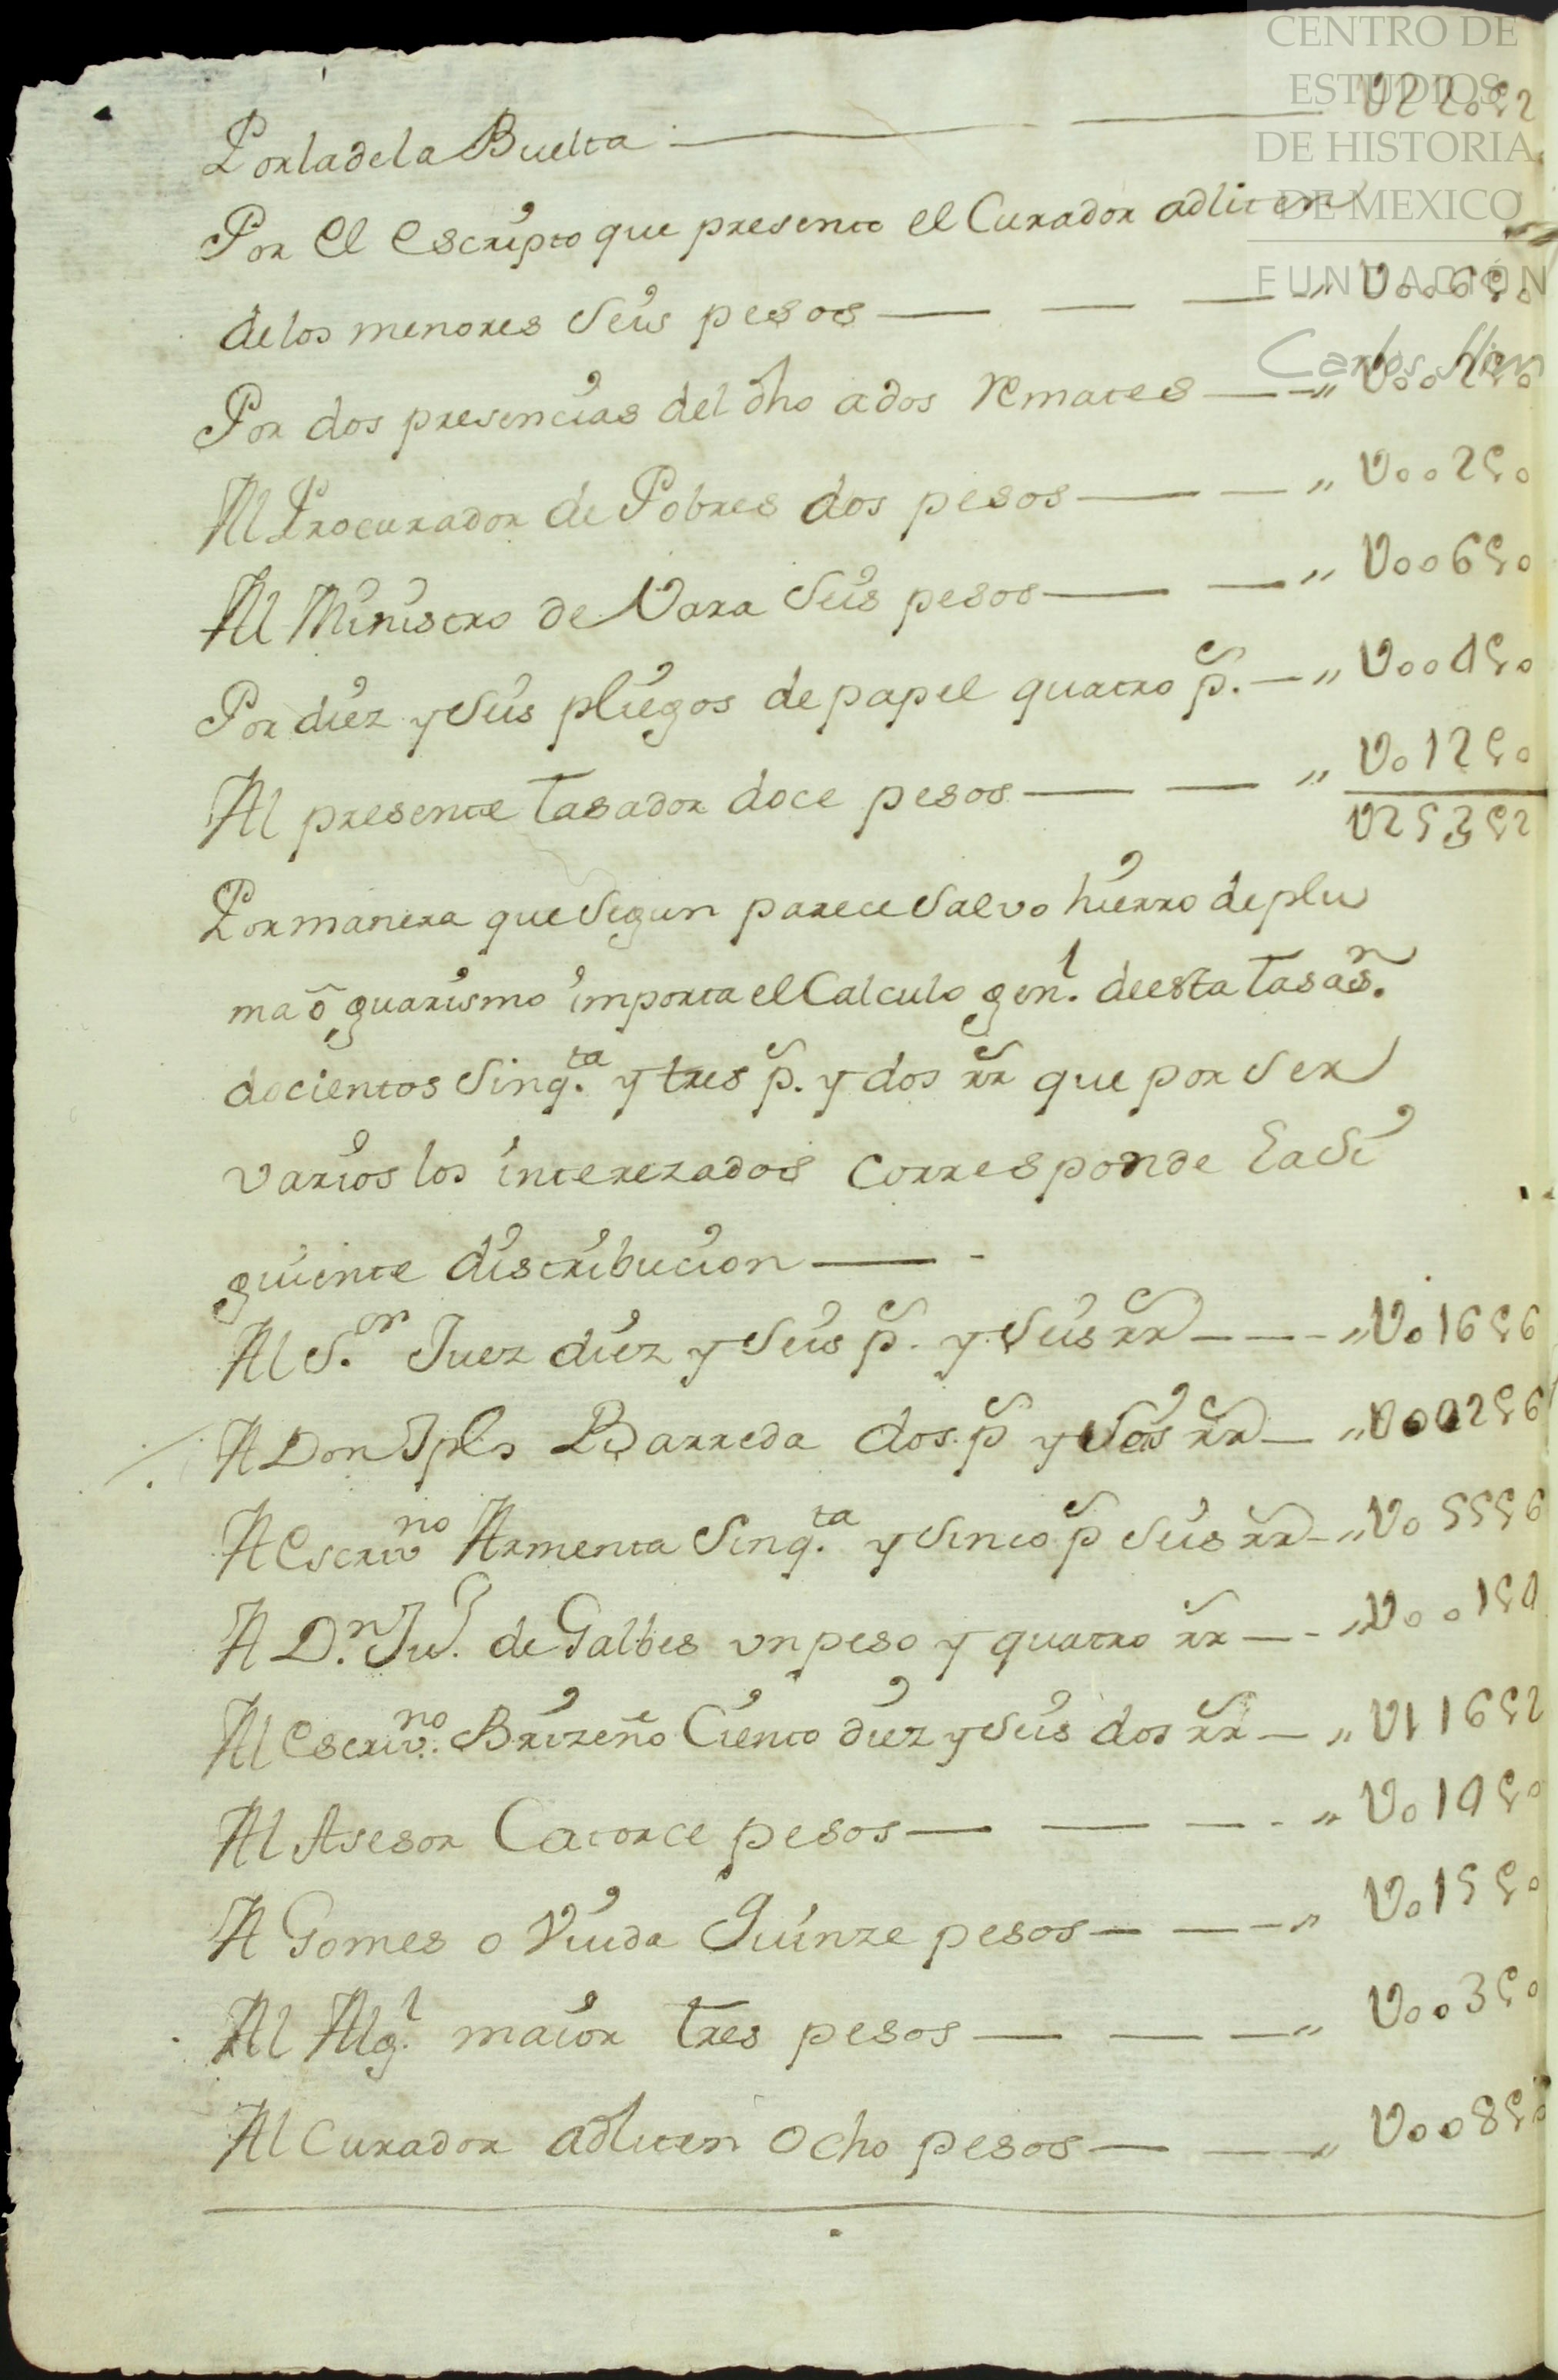 Por la de la Buelta ——— U221S2
Por el escripto que presento el Curador adlitem
de los menores Seis pesos — — — " U006S0
Por dos presencias del dho a dos Remates — " U002S0
Al Procurador de Pobres dos pesos — — " U002S0
Al Ministro de Vara Seis pesos — — " U006S0
Por diez y Seis pliegos de papel quatro ps. — " U004S0
Al presente Tasador doce pesos — — " U012S0
U253S2
Por manera que Segun parece Salvo hierro de plu
ma ô guarismo importa el Calculo genl. de esta Tasasn.
docientos Sinqta. y tres ps. y dos rrs que por Ser
varios los interezados corresponde la Si
guiente distribucion — -
Al Sor. Juez diez y Seis ps. y Seis rrs — — - " U016S6
A Don Ipls Barreda dos ps y Seis rrs — " U002S6
A Escrivno Armenta Sinqta. y Sinco ps Seis rrs - " U055S6
A Dn. Ju. de Galbes un peso y quatro rrs — - " U001S4
Al Escrivno. Brizeño Ciento diez y Seis dos rrs — " U116S2
Al Asesor Catorce pesos — — — - " U014S0
A Gomes o Viuda Quinze pesos — — — " U015S0
Al Algl. maior Tres pesos — — — " U003S0
Al Curador adliten Ocho pesos — — " U008S0
CENTRO DE
ESTUDIOS
DE HISTORIA
DE MEXICO
FUNDACIÓN
Carlos Slim